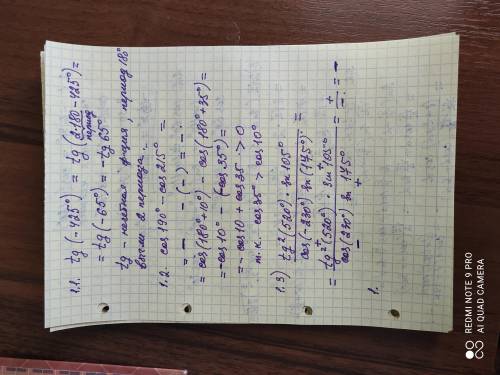 1.1. tg(-425°) = tg(2·180-425°) =
период
= tg(-65°) = -tg 65°
tg - нечетная функция, период 180°
взяли 2 периода.
1.2. cos 190° - cos 215° =
= - - (-) = -.
= cos(180°+10°) - cos(180°+35°) =
= -cos 10° - (-cos 35°) =
= -cos 10 + cos 35 > 0
т.к. cos 35° > cos 10°
1.3) tg²(520°) · sin 105° =
cos(-230°) sin(175°)
= tg²(520°) · sin 105° = + = -
cos(230°) sin 175° -
- +
1.
REDMI NOTE 9 PRO
AI QUAD CAMERA